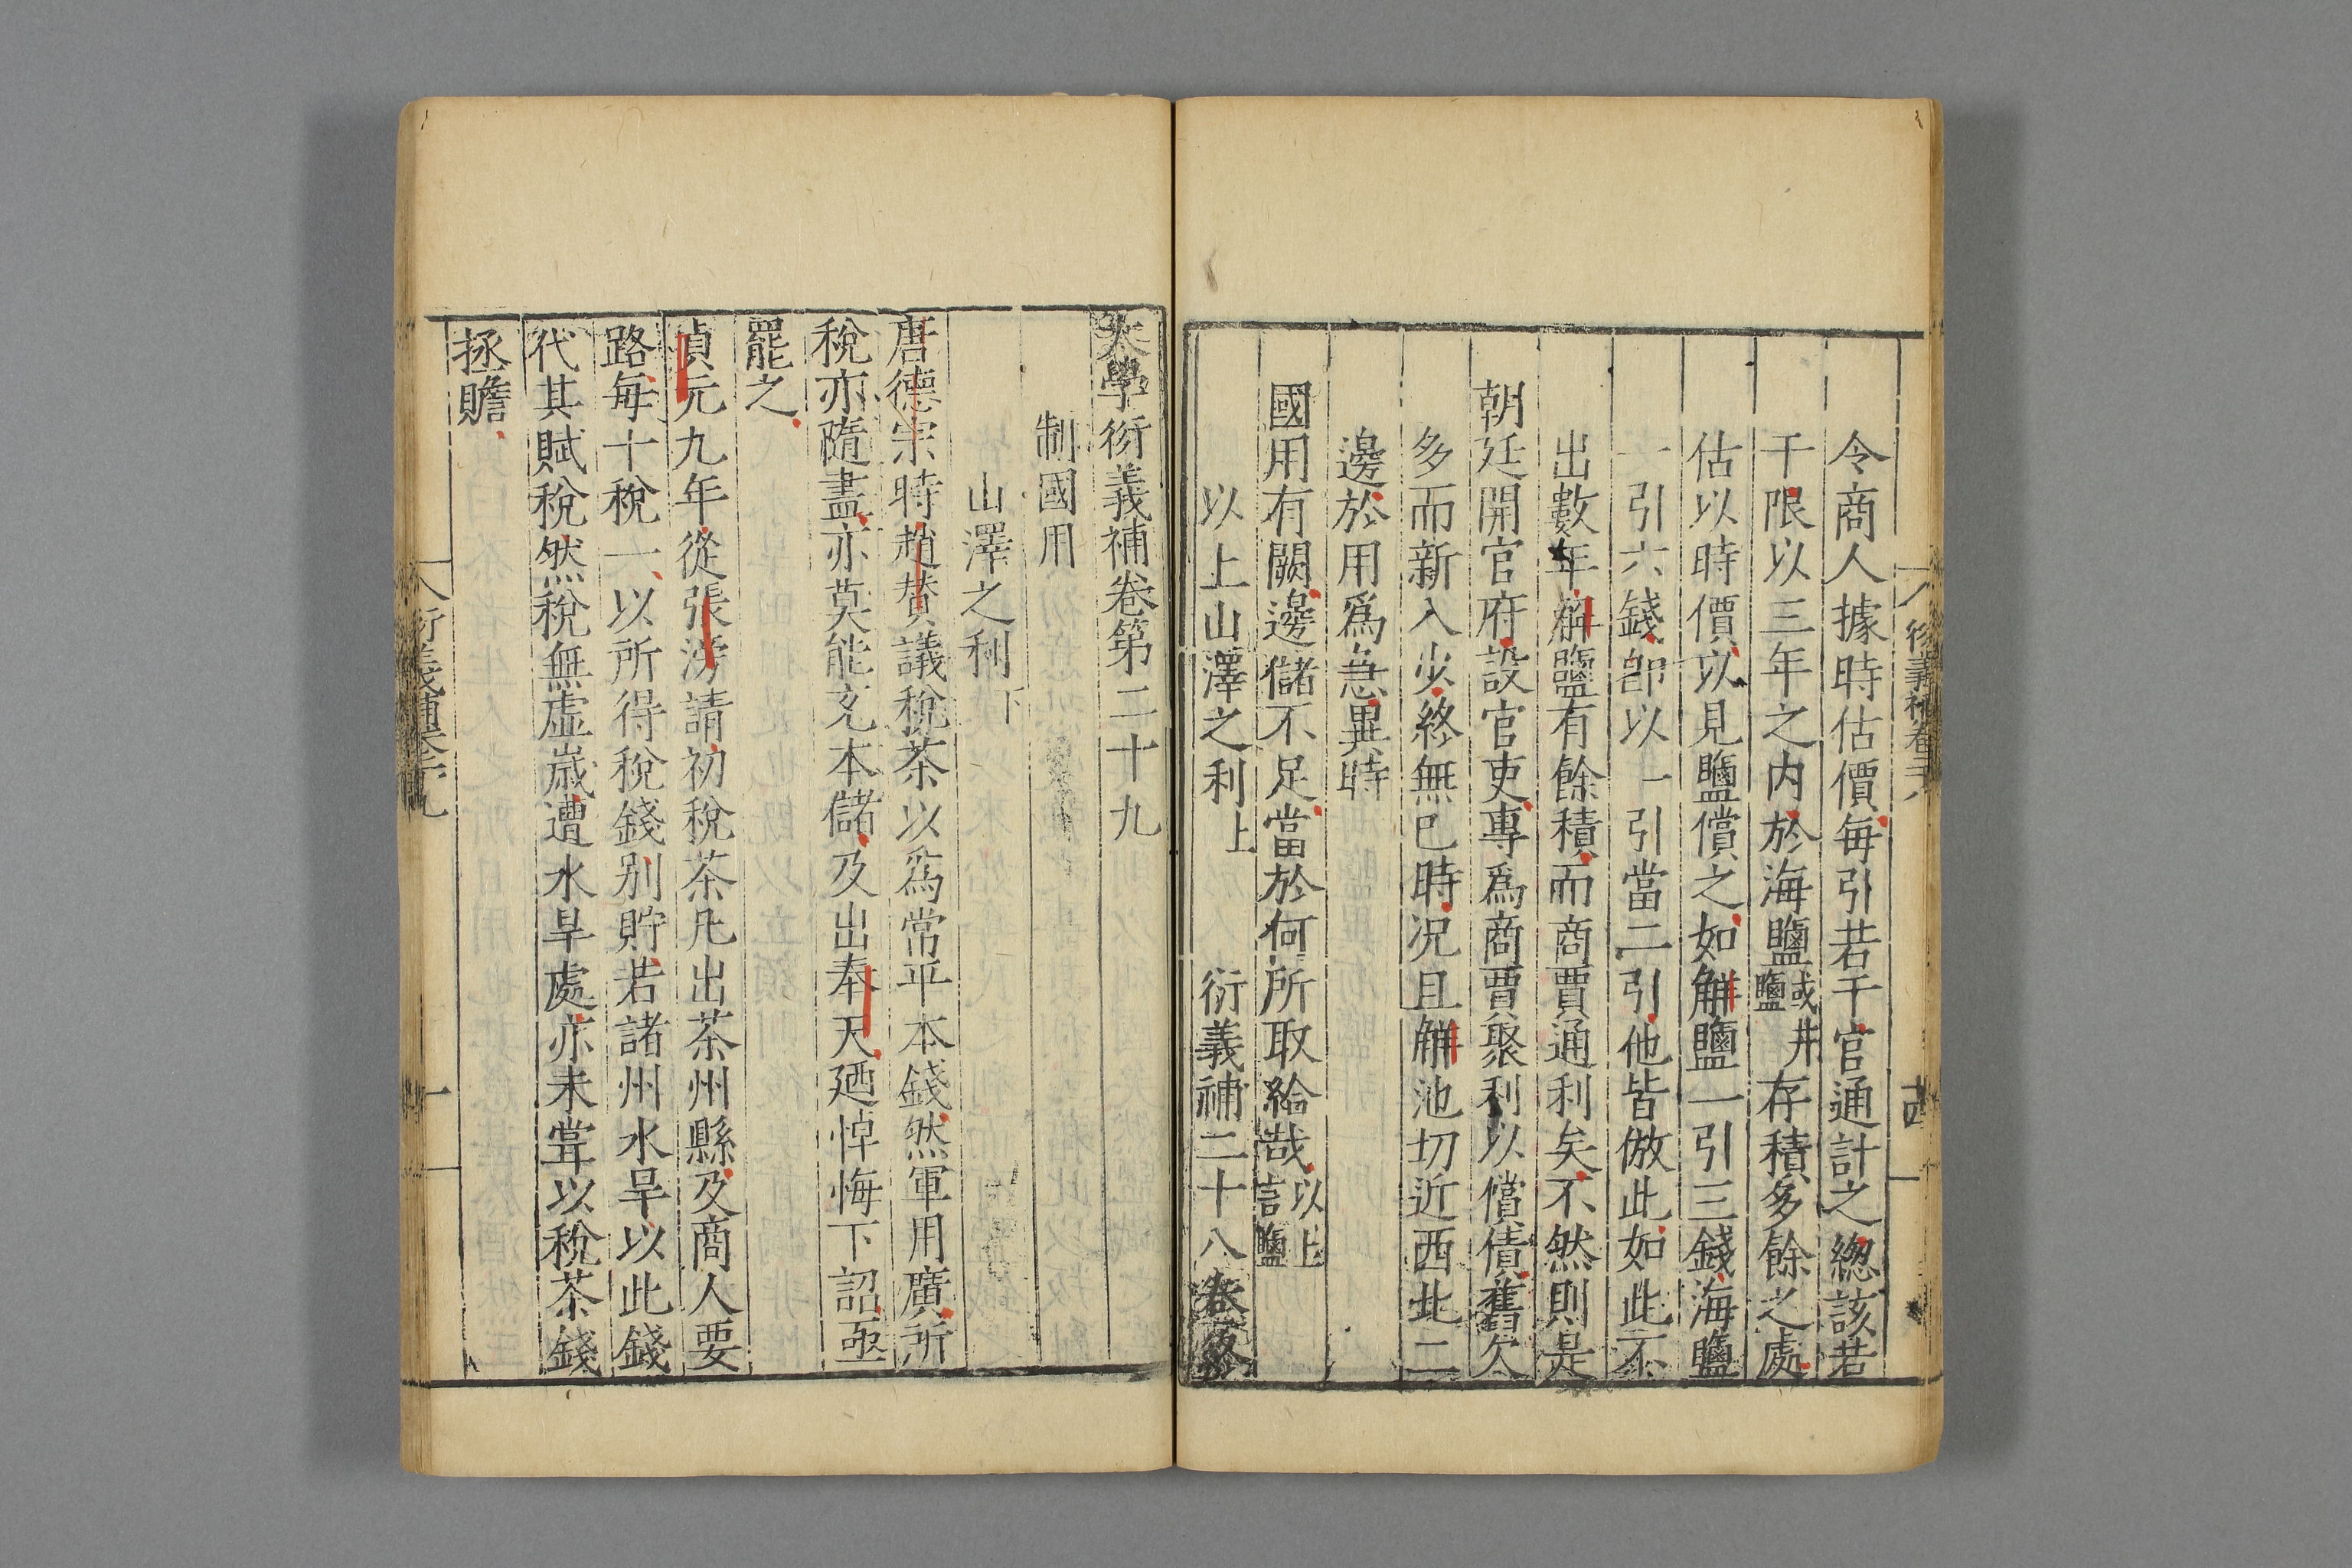 令商人據時估價每引若干官通計之緫該若
干限以三年之内於海鹽或井鹽存積多餘之處
估以時價以見鹽償之如觧鹽一引三錢海鹽
一引六錢卽以一引當二引他皆倣此如此不
出數年觧鹽有餘積而商賈通利矣不然則是
朝廷開官府設官吏專爲商賈聚利以償債舊欠
多而新入少終無已時况且觧池切近西北二
邊於用爲急異時
國用有闕邊儲不足當於何所取給哉以上言鹽
以上山澤之利上 衍義補二十八卷終
大學衍義補卷第二十九
制國用
山澤之利下
唐德宗時趙賛議稅茶以爲常平本錢然軍用廣所
稅亦隨盡亦莫能充本儲及出奉天廼悼悔下詔亟
罷之
貞元九年從張滂請初稅茶凡出茶州縣及商人要
路每十稅一以所得稅錢别貯若諸州水旱以此錢
代其賦稅然稅無虛歲遭水旱處亦未甞以稅茶錢
拯贍